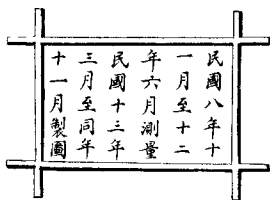 民國八年十
一月至十二
年六月測量
民國十三年
三月至同年
十一月製圖